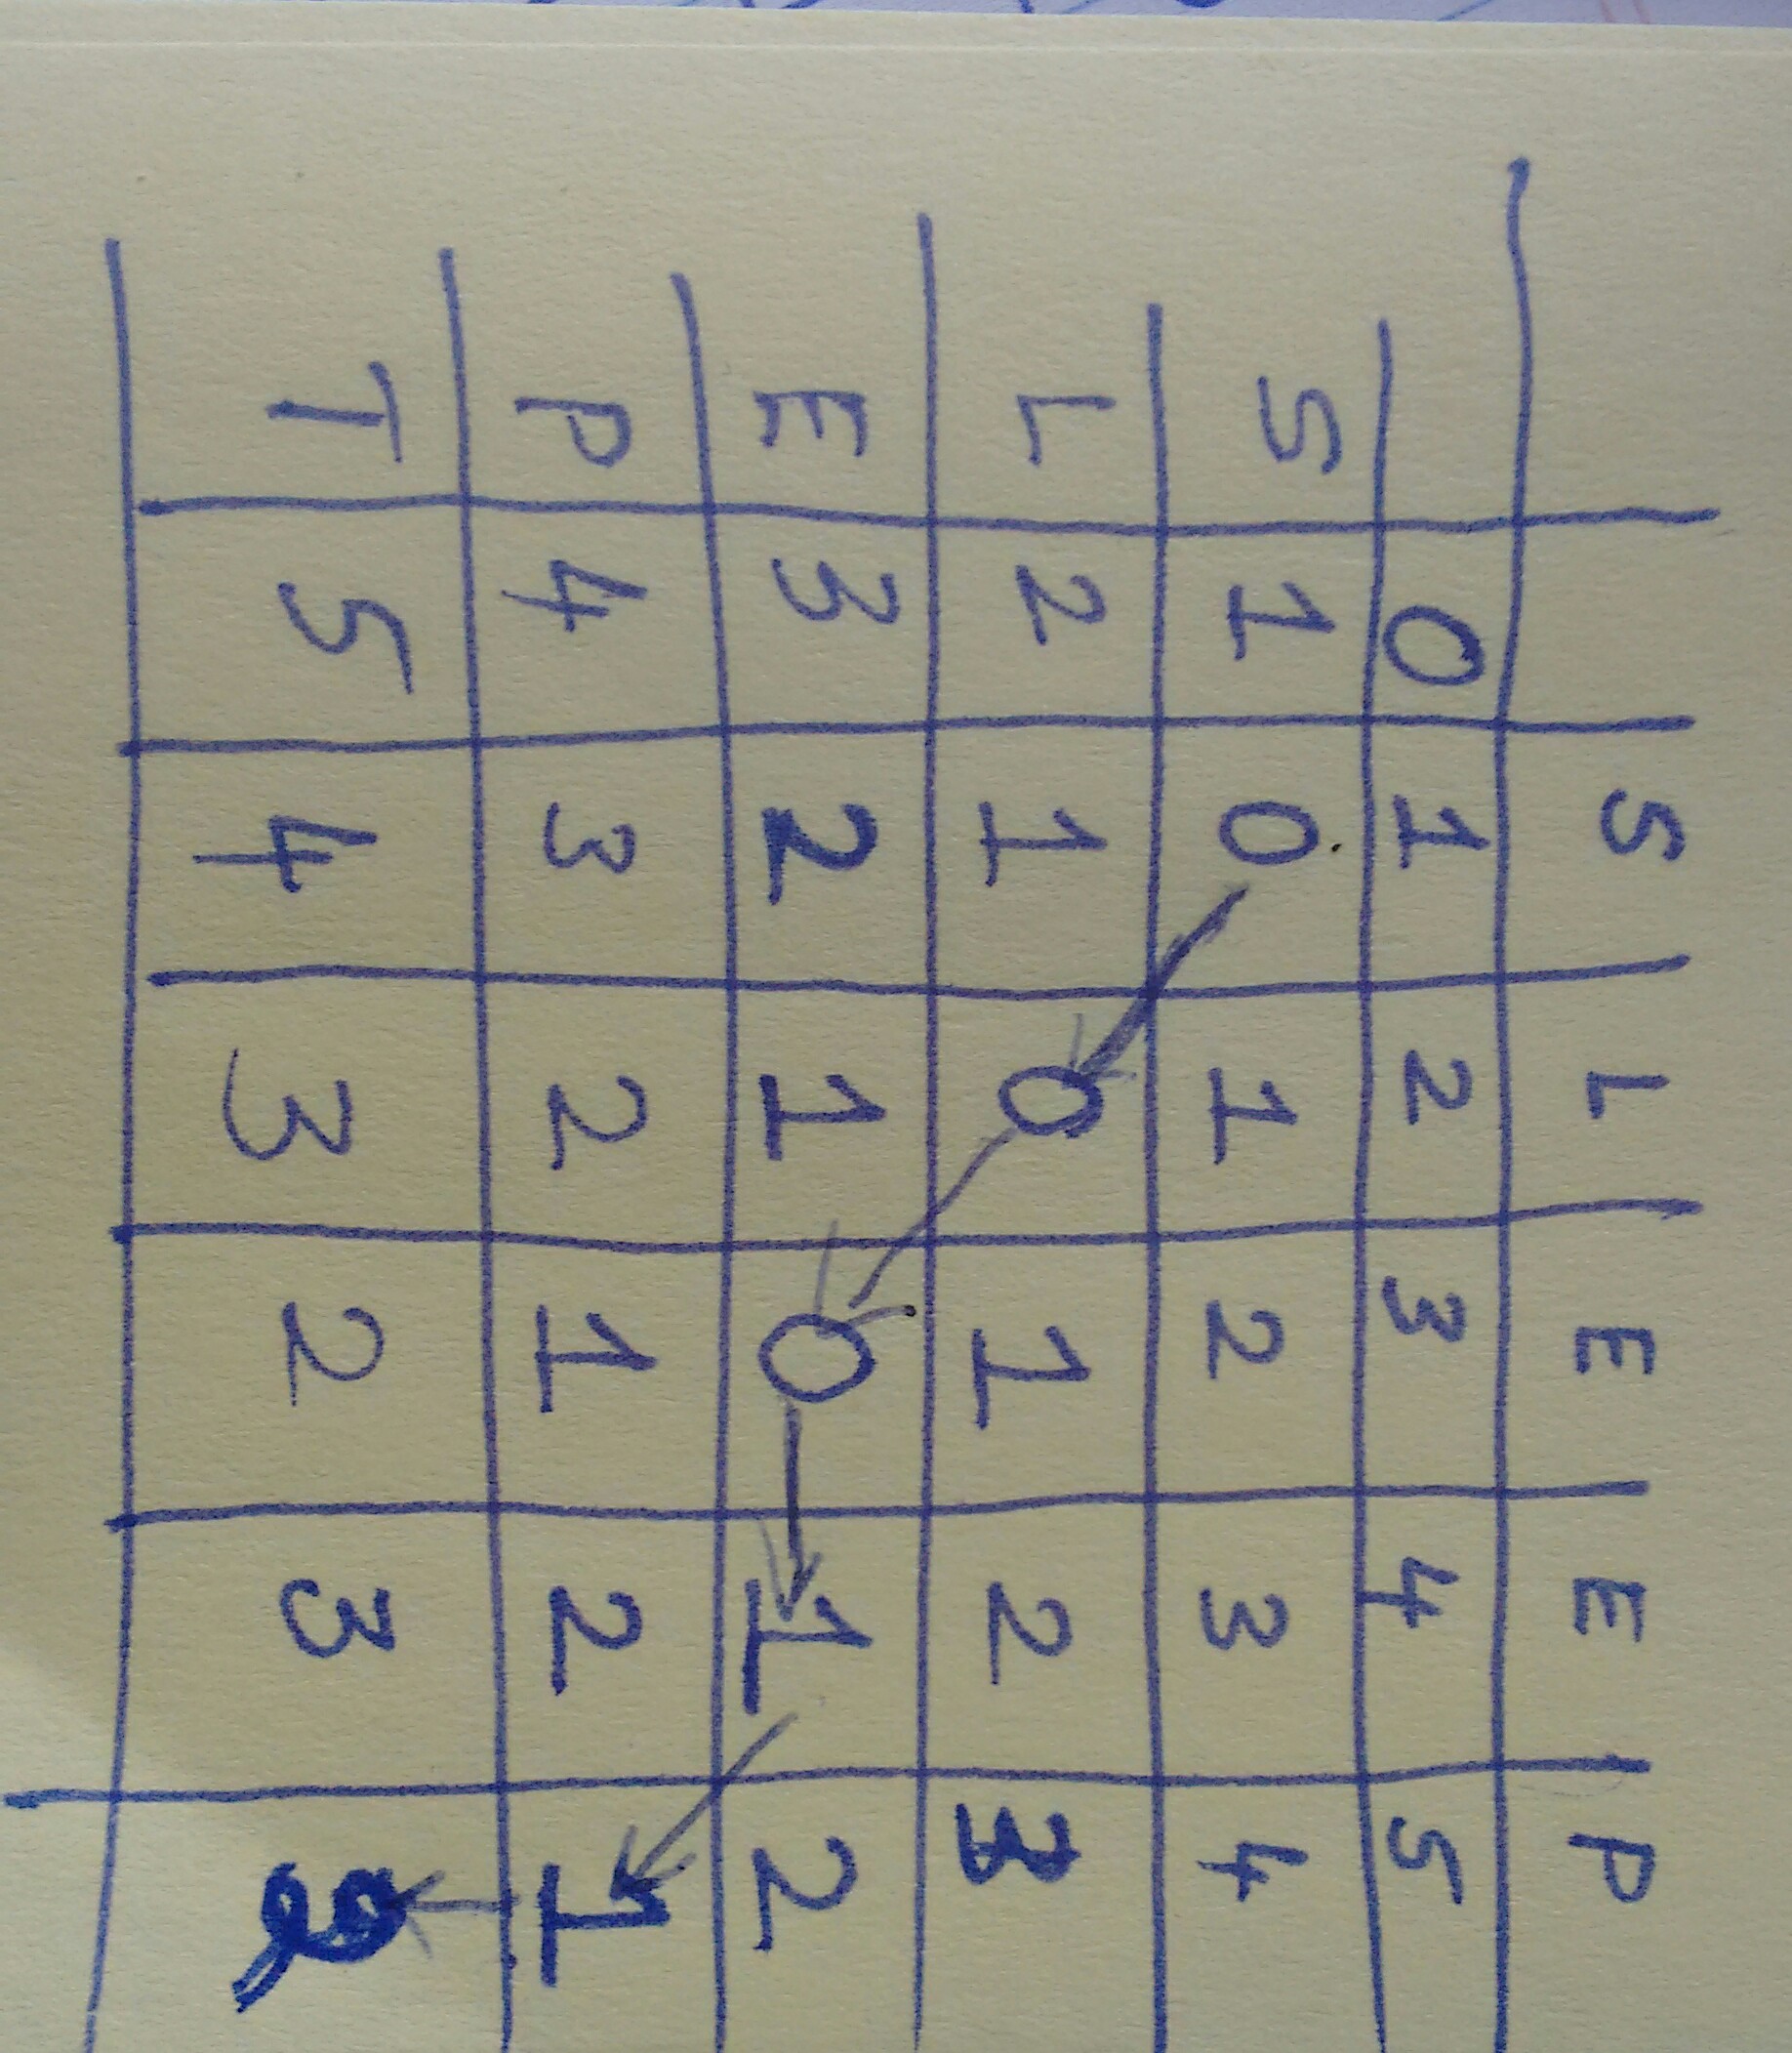 S L E E P
0 1 2 3 4 5
S 1 0 1 2 3 4
L 2 1 0 1 2 3
E 3 2 1 0 1 2
P 4 3 2 1 2 1
T 5 4 3 2 3 2